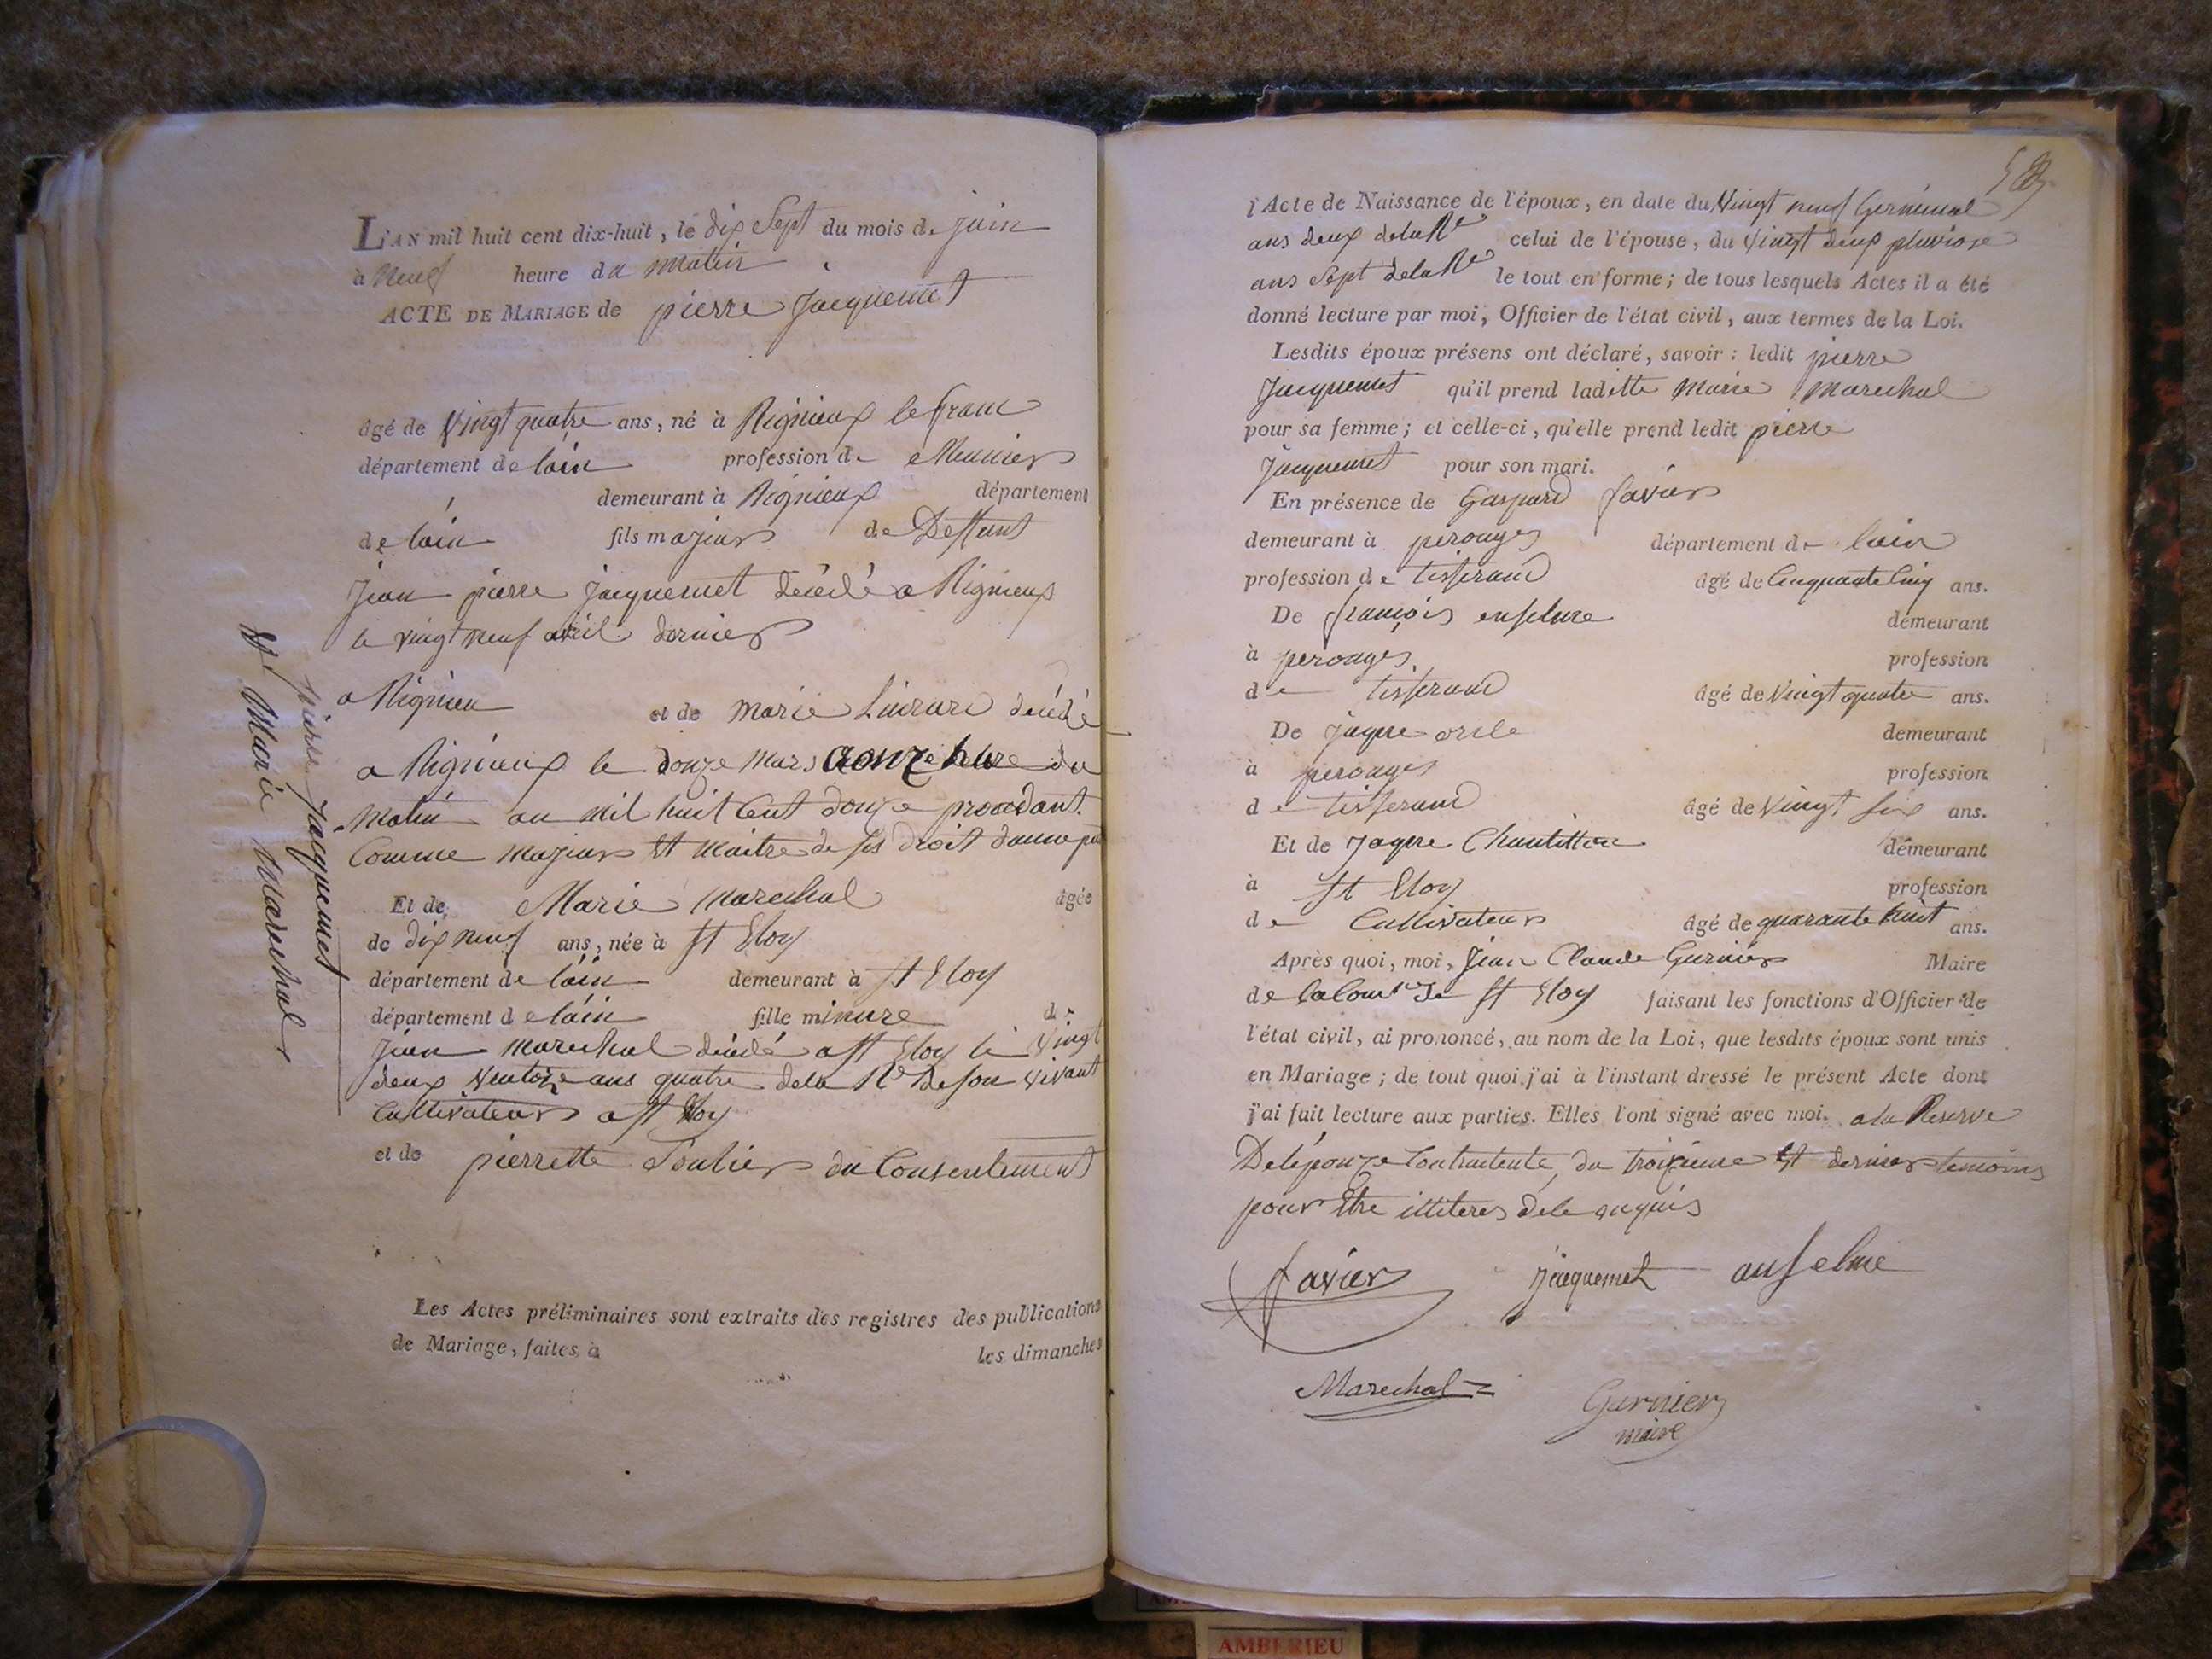 L'AN mil huit cent dix-huit, le dix Sept du mois de juin
à Neuf heure du matin
ACTE DE MARIAGE de pierre Jacquemet
âgé de Vingt quatre ans, né à Rignieux le franc
département de lain profession de Meunier
demeurant à Rignieux département
de lain fils majeur de Deffunt
Jean pierre jacquemet décédé a Rignieux
le vingt neuf avril dernier
a Rignieu et de marie décédé
a Rignieux le douze mars a onze heure du
matin an mil huit Cent douze procédant
Comme majeur Et maitre de ses droit
Et de Marie marechal âgée
de dix neuf ans, née à St Eloy
département de lain demeurant à St Eloy
département de lain fille minure de
jean marechal décédé a St Eloy le Vingt
deux Ventoze ans quatre dela Re de son vivant
Cultivateur a St Eloy
et de pierrette Soulier du Consentement
Les Actes préliminaires sont extraits des registres des publications
de Mariage, faites à les dimanches
pierre Jacquemet
Et Marie Marechal
l'Acte de Naissance de l'époux, en date du Vingt neuf Germinal
ans deux dela Re celui de l'épouse, du Vingt deux pluviose
ans Sept dela Re le tout en forme; de tous lesquels Actes il a été
donné lecture par moi, Officier de l'état civil, aux termes de la Loi.
Lesdits époux présens ont déclaré, savoir: ledit pierre
Jacquemet qu'il prend laditte Marie Marechal
pour sa femme; et celle-ci, qu'elle prend ledit pierre
Jacquemet pour son mari.
En présence de Gaspard favier
demeurant à perouges département de lain
profession de tisserand âgé de Cinquante Cinq ans.
De françois enselme demeurant
à perouges profession
de tisserand âgé de Vingt quatre ans.
De demeurant
à perouges profession
de tisserand âgé de Vingt six ans.
Et de demeurant
à St Eloy profession
de Cultivateur âgé de quarante huit ans.
Après quoi, moi, Jean Claude Gurnier Maire
de la Comne de St Eloy faisant les fonctions d'Officier de
l'état civil, ai prononcé, au nom de la Loi, que lesdits époux sont unis
en Mariage; de tout quoi j'ai à l'instant dressé le présent Acte dont
j'ai fait lecture aux parties. Elles l'ont signé avec moi. a la Reserve
Delépouze Contractente, du troizieme Et dernier temoins
pour Etre illiteres dele anquis
favier jacquemet anselme
Marechal
Gurnier
maire
AMBERIEU